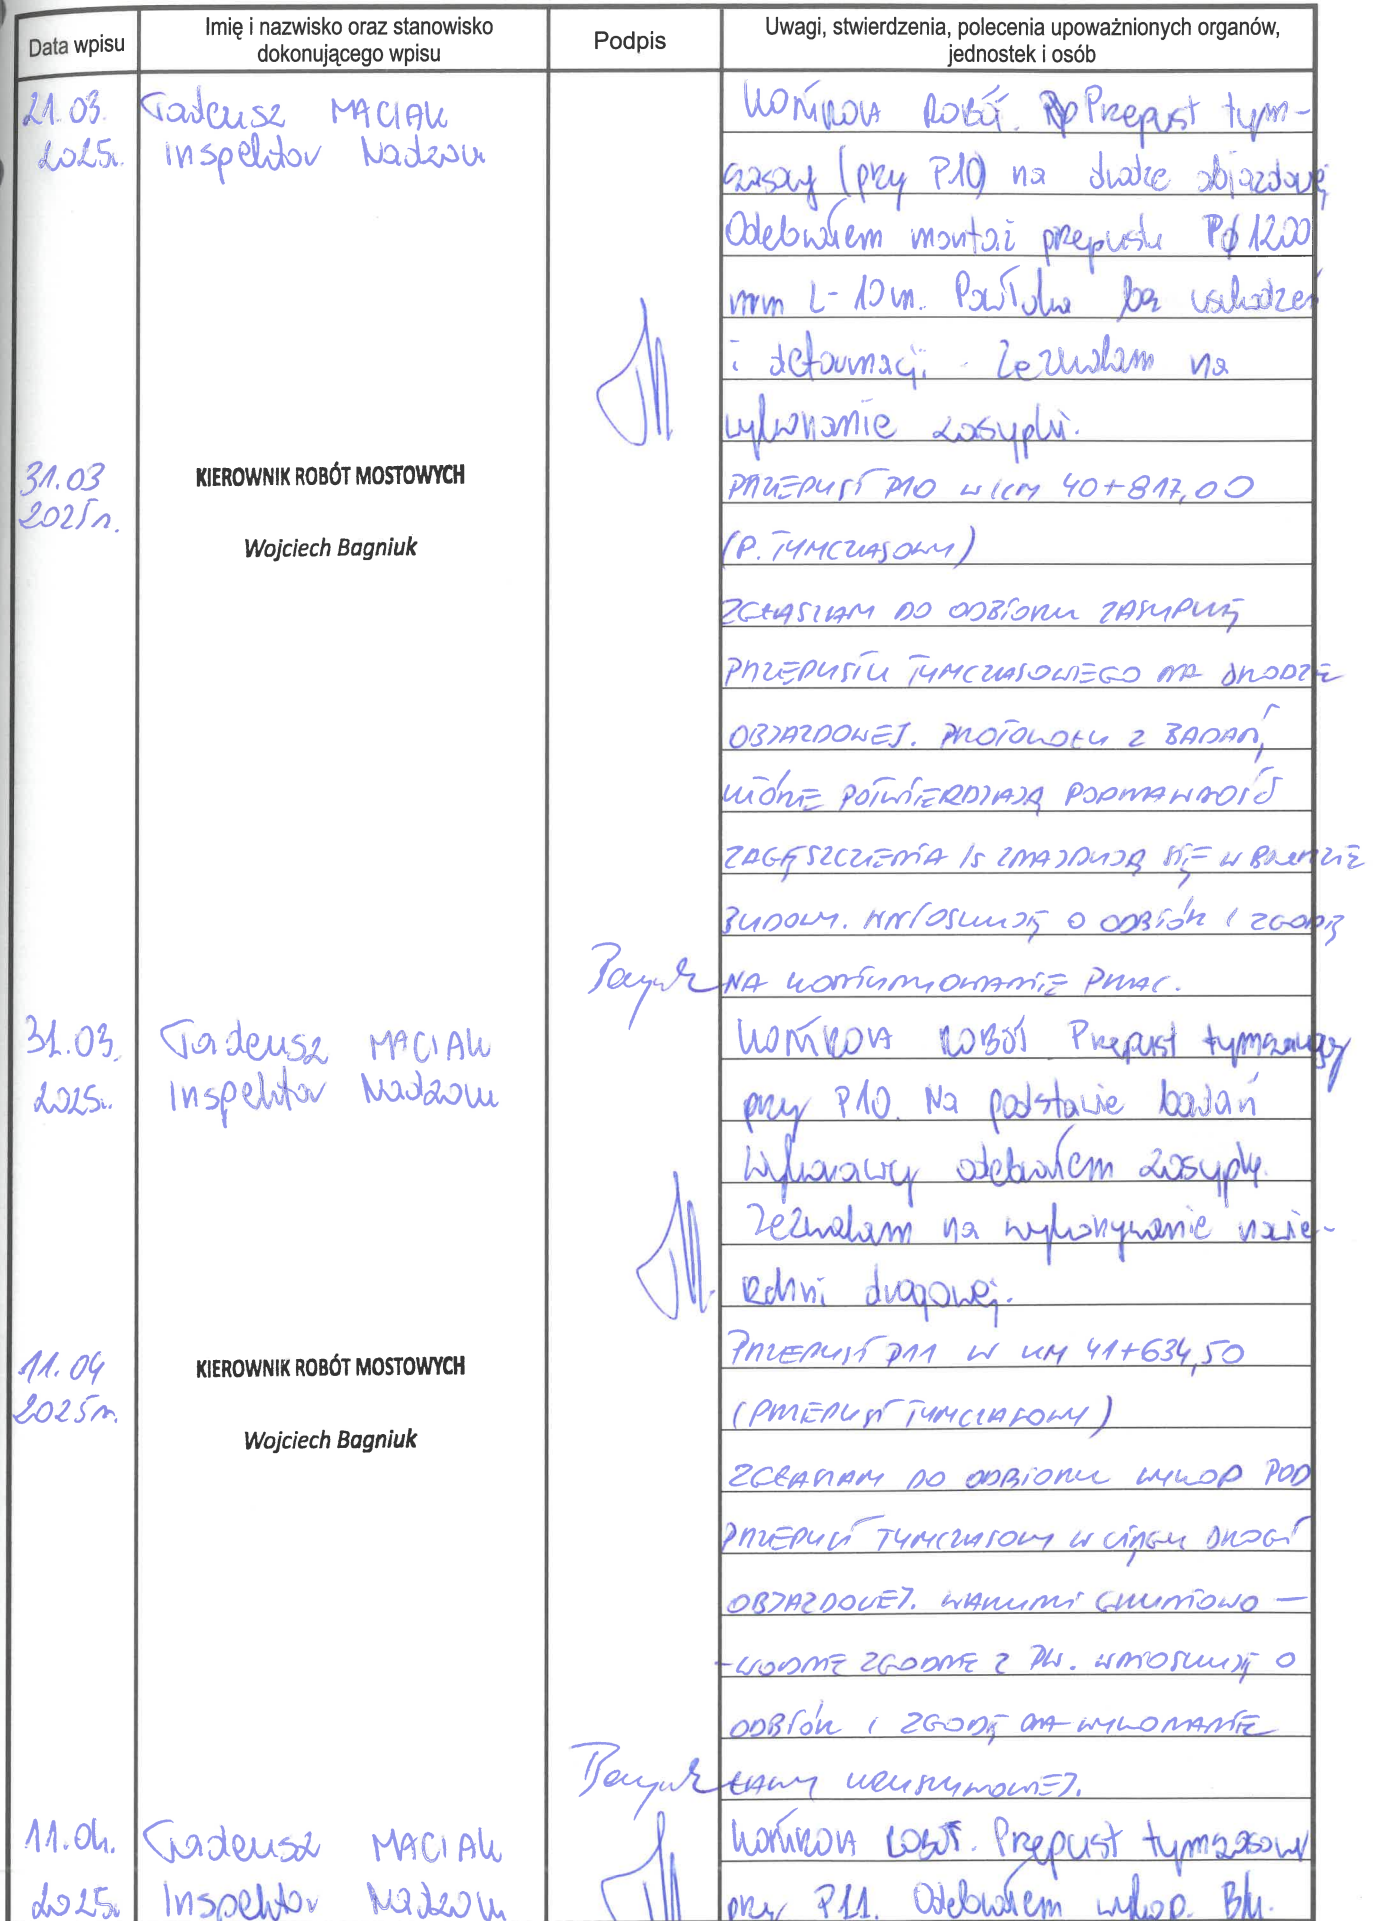 Data wpisu
Imię i nazwisko oraz stanowisko
dokonującego wpisu
Podpis
Uwagi, stwierdzenia, polecenia upoważnionych organów,
jednostek i osób
21.03.
2025r.
Tadeusz MACIAK
Inspektor Nadzoru
KONTROLA ROBÓT. Przepust tym-
czasowy (przy P10) na drodze objazdowej
Odebrałem montaż przepustu Pø1200
mm L-10m. Powłoka bez uszkodzeń
i deformacji. Zezwalam na
wykonanie zasypki.
31.03
2025r.
KIEROWNIK ROBÓT MOSTOWYCH
Wojciech Bagniuk
PRZEPUST P10 W KM 40+817,00
(P. TYMCZASOWY)
ZGŁASZAM DO ODBIORU ZASYPKĘ
PRZEPUSTU TYMCZASOWEGO NA DRODZE
OBJAZDOWEJ. PROTOKOŁY Z BADAŃ,
KTÓRE POTWIERDZAJĄ POPRAWNOŚĆ
ZAGĘSZCZENIA IS ZNAJDUJĄ SIĘ W BIURZE
BUDOWY. WNIOSKUJĘ O ODBIÓR I ZGODĘ
NA KONTYNUOWANIE PRAC.
31.03.
2025r.
Tadeusz MACIAK
Inspektor Nadzoru
KONTROLA ROBÓT Przepust tymczasowy
przy P10. Na podstawie badań
Wykonawcy odebrałem zasypkę.
Zezwalam na wykonywanie nawie-
rzchni drogowej.
11.04
2025r.
KIEROWNIK ROBÓT MOSTOWYCH
Wojciech Bagniuk
PRZEPUST P11 W KM 41+634,50
(PRZEPUST TYMCZASOWY)
ZGŁASZAM DO ODBIORU WYKOP POD
PRZEPUST TYMCZASOWY W CIĄGU DROGI
OBJAZDOWEJ. WARUNKI GRUNTOWO -
-WODNE ZGODNE Z PW. WNIOSKUJĘ O
ODBIÓR I ZGODĘ NA WYKONANIE
ŁAWY KRUSZYWOWEJ.
11.04.
2025r.
Tadeusz MACIAK
Inspektor Nadzoru
KONTROLA ROBÓT. Przepust tymczasowy
przy P11. Odebrałem wykop. BU.